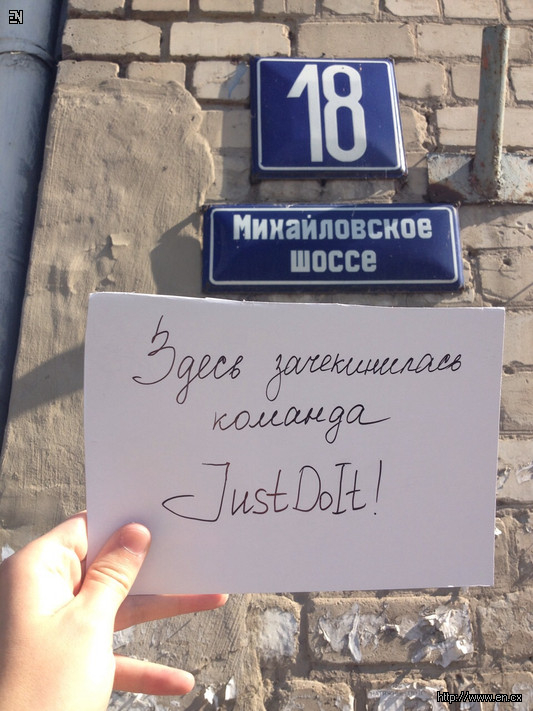 EN
18
Михайловское
шоссе
Здесь зачекинилась
команда
JustDoIt!
http://www.en.cx